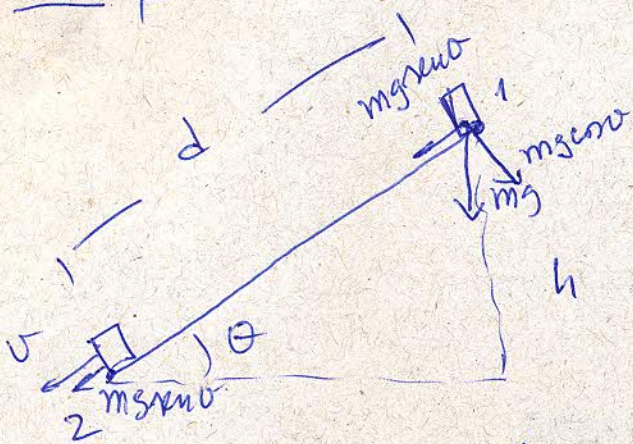 mg senθ
1
d
mg cosθ
mg
h
v
θ
mg senθ
2